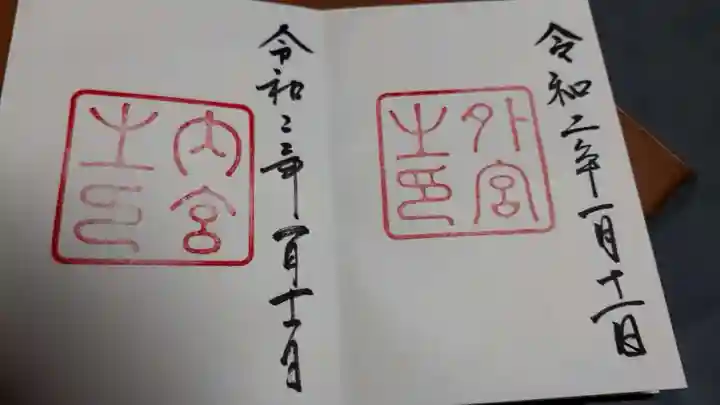 令和二年一月十一日
外宮
之印
令和二年一月十一日
内宮
之印